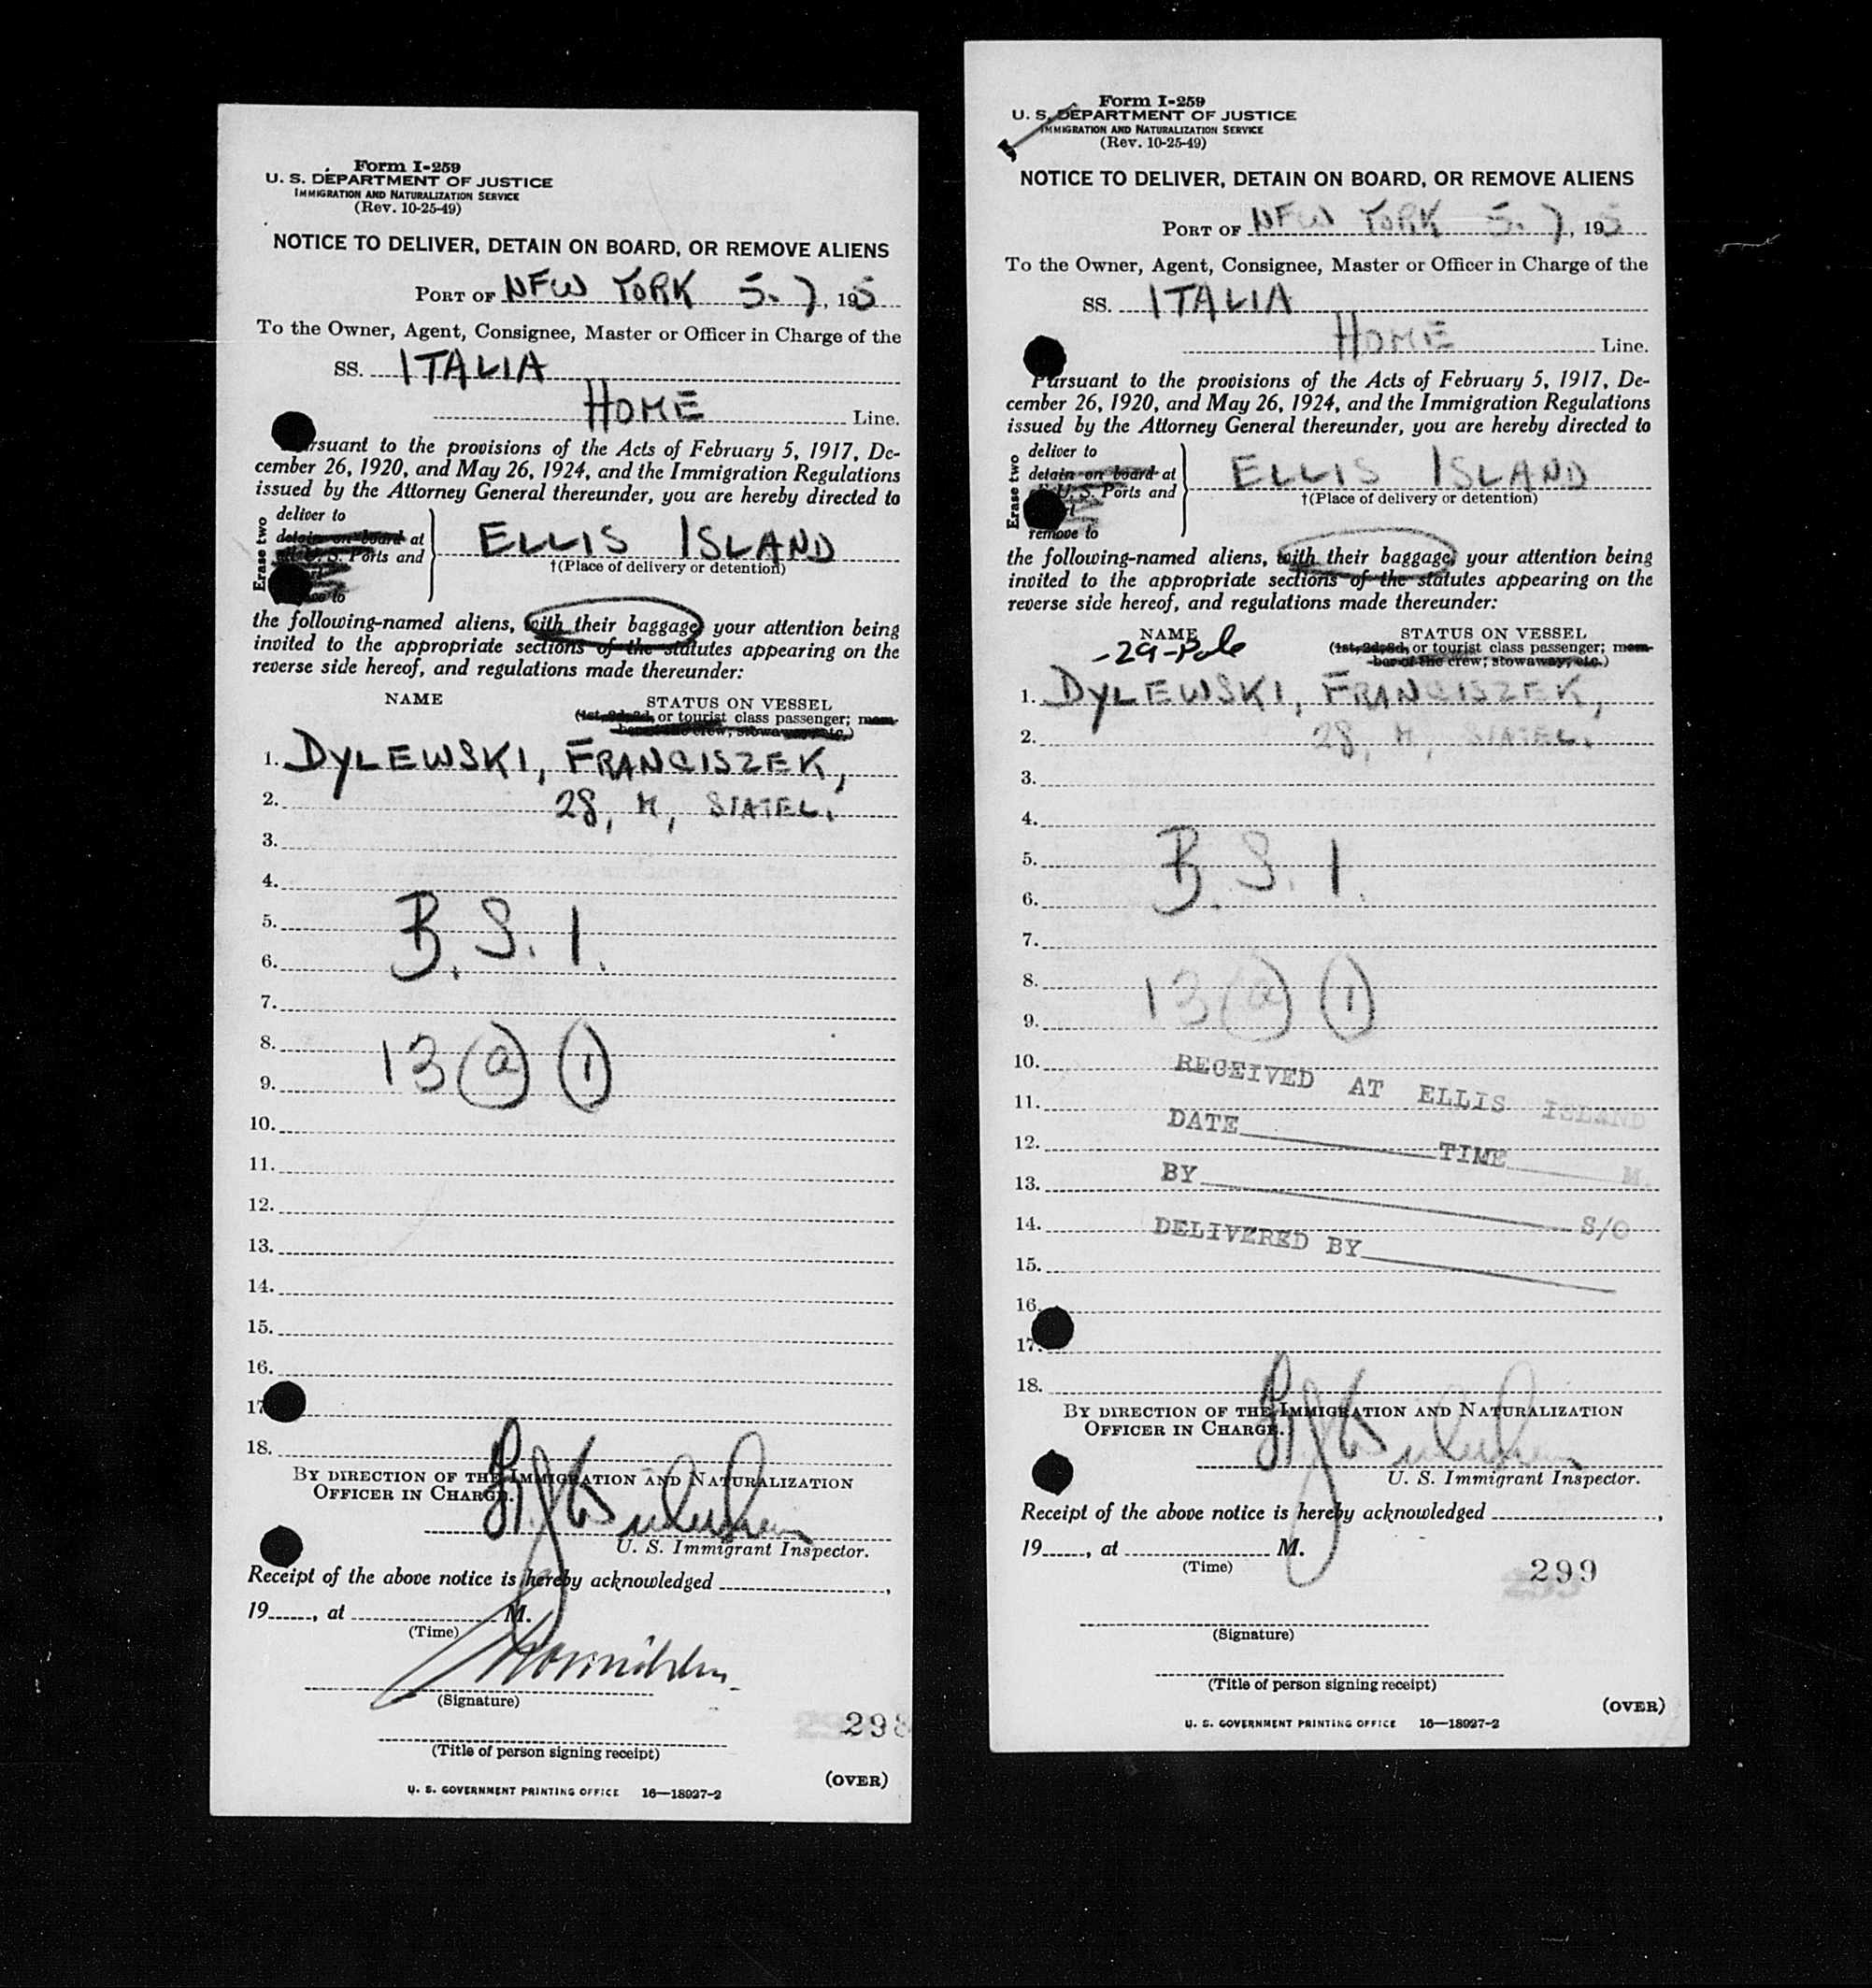 Form I-259
U. S. DEPARTMENT OF JUSTICE
IMMIGRATION AND NATURALIZATION SERVICE
(Rev. 10-25-49)
NOTICE TO DELIVER, DETAIN ON BOARD, OR REMOVE ALIENS
PORT OF NEW YORK 5. 7, 195
To the Owner, Agent, Consignee, Master or Officer in Charge of the
SS. ITALIA
HOME Line.
rsuant to the provisions of the Acts of February 5, 1917, De-
cember 26, 1920, and May 26, 1924, and the Immigration Regulations
issued by the Attorney General thereunder, you are hereby directed to
Erase two
deliver to
detain on board at
U. S. Ports and
to
ELLIS ISLAND
†(Place of delivery or detention)
the following-named aliens, with their baggage, your attention being
invited to the appropriate sections of the statutes appearing on the
reverse side hereof, and regulations made thereunder:
NAME
STATUS ON VESSEL
(1st, 2d, 3d, or tourist class passenger; mem-
ber of the crew; stowaway, etc.)
1. DYLEWSKI, FRANCISZEK,
2. 28, M, STATEL.
3.
4.
5. B. S. I.
6.
7.
8. 13 (a) (1)
9.
10.
11.
12.
13.
14.
15.
16.
17
18.
BY DIRECTION OF THE IMMIGRATION AND NATURALIZATION
OFFICER IN CHARGE.
U. S. Immigrant Inspector.
Receipt of the above notice is hereby acknowledged ,
19 , at M.
(Time)
(Signature)
298
(Title of person signing receipt)
(OVER)
U. S. GOVERNMENT PRINTING OFFICE 16—18927-2
Form I-259
U. S. DEPARTMENT OF JUSTICE
IMMIGRATION AND NATURALIZATION SERVICE
(Rev. 10-25-49)
NOTICE TO DELIVER, DETAIN ON BOARD, OR REMOVE ALIENS
PORT OF NEW YORK 5. 7, 195
To the Owner, Agent, Consignee, Master or Officer in Charge of the
SS. ITALIA
HOME Line.
Pursuant to the provisions of the Acts of February 5, 1917, De-
cember 26, 1920, and May 26, 1924, and the Immigration Regulations
issued by the Attorney General thereunder, you are hereby directed to
Erase two
deliver to
detain on board at
U. S. Ports and
remove to
ELLIS ISLAND
†(Place of delivery or detention)
the following-named aliens, with their baggage, your attention being
invited to the appropriate sections of the statutes appearing on the
reverse side hereof, and regulations made thereunder:
NAME
-29-Pole
STATUS ON VESSEL
(1st, 2d, 3d, or tourist class passenger; mem-
ber of the crew; stowaway, etc.)
1. DYLEWSKI, FRANCISZEK,
2. 28, M, STATEL.
3.
4.
5. B. S. I.
6.
7.
8. 13 (a) (1)
9.
10. RECEIVED AT ELLIS ISLAND
11.
DATE TIME M.
12.
13. BY S/O
14. DELIVERED BY
15.
16.
17.
18.
BY DIRECTION OF THE IMMIGRATION AND NATURALIZATION
OFFICER IN CHARGE.
U. S. Immigrant Inspector.
Receipt of the above notice is hereby acknowledged ,
19 , at M.
(Time)
299
(Signature)
(Title of person signing receipt)
(OVER)
U. S. GOVERNMENT PRINTING OFFICE 16—18927-2